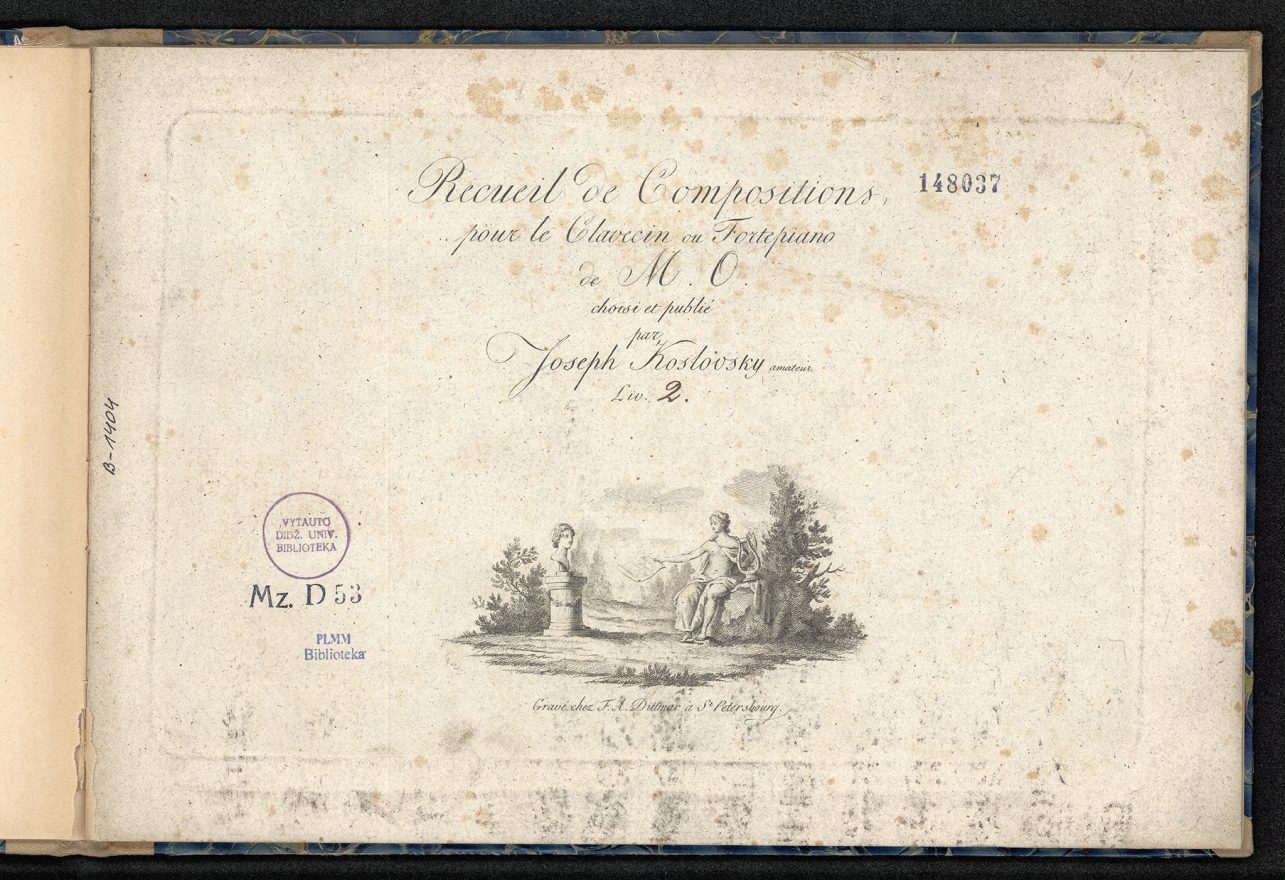 Recueil de Compositions,
148037
pour le Clavecin ou Fortepiano
de M. O.
choisi et publié
par
Joseph Koslovsky amateur.
Liv. 2.
B-1404
VYTAUTO
DIDŽ. UNIV.
BIBLIOTEKA
Mz. D 53
PLMM
Biblioteka
Gravé chez F. A. Dittmar a St Petersbourg.